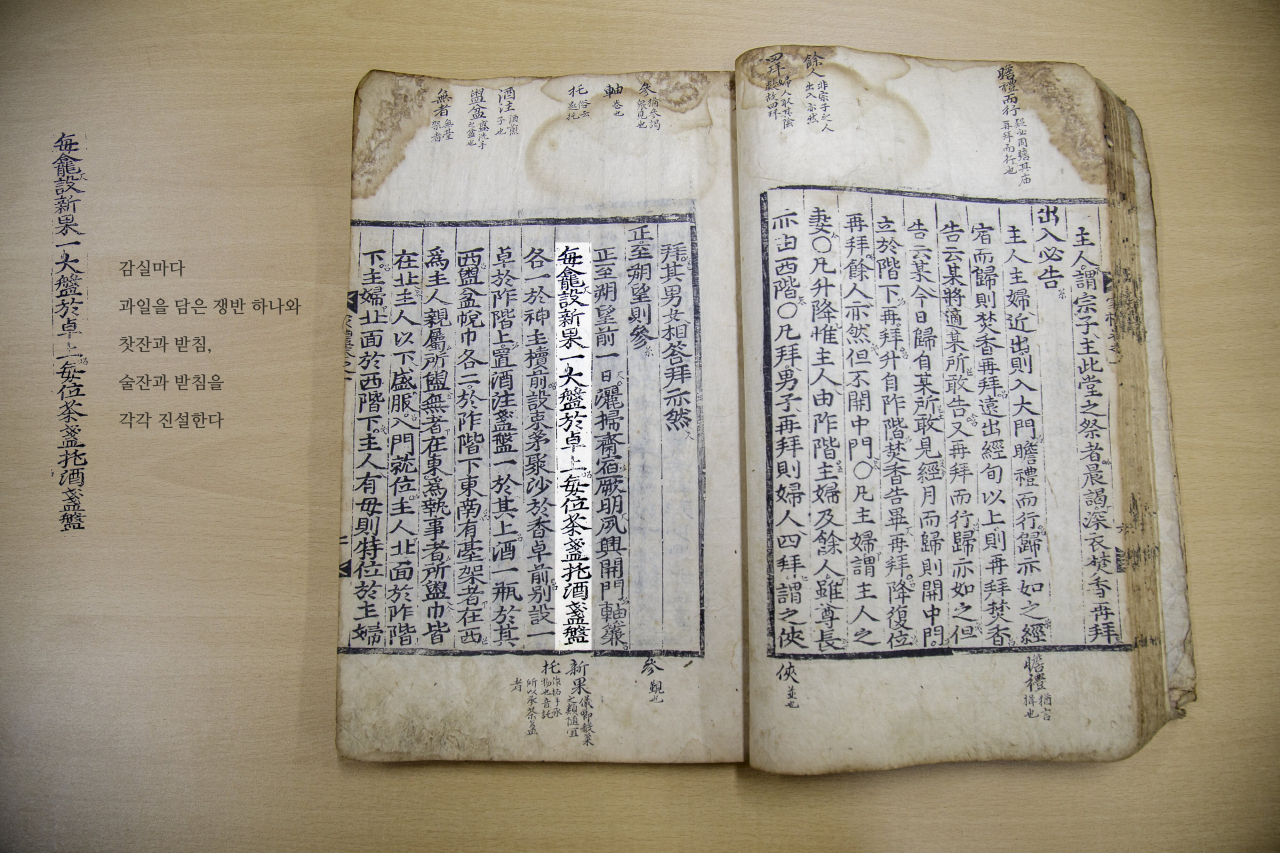 每龕設新果一大盤於卓上每位茶盞托酒盞盤
감실마다
과일을 담은 쟁반 하나와
찻잔과 받침,
술잔과 받침을
각각 진설한다
瞻禮而行
餘人 非宗子之人出入亦然
四拜
主人謂宗子主此堂之祭者晨謁深衣焚香再拜
出入必告
主人主婦近出則入大門瞻禮而行歸亦如之經
宿而歸則焚香再拜遠出經旬以上則再拜焚香
告云某將適某所敢告又再拜而行歸亦如之但
告云某今日歸自某所敢見經月而歸則開中門
立於階下再拜升自阼階焚香告畢再拜降復位
再拜餘人亦然但不開中門○凡主婦謂主人之
妻○凡升降惟主人由阼階主婦及餘人雖尊長
亦由西階○凡拜男子再拜則婦人四拜謂之俠
瞻禮 猶言揖也
俠 並也
參
軸 卷也
托
酒注
盥盆
無者
拜其男女相答拜亦然
正至朔望則參
正至朔望前一日灑掃齋宿厥明夙興開門軸簾
每龕設新果一大盤於卓上每位茶盞托酒盞盤
各一於神主櫝前設束茅聚沙於香卓前別設一
卓於阼階上置酒注盞盤一於其上酒一瓶於其
西盥盆帨巾各二於阼階下東南有臺架者在西
爲主人親屬所盥無者在東爲執事者所盥巾皆
在北主人以下盛服入門就位主人北面於阼階
下主婦北面於西階下主人有母則特位於主婦
參 觀也
新果
托